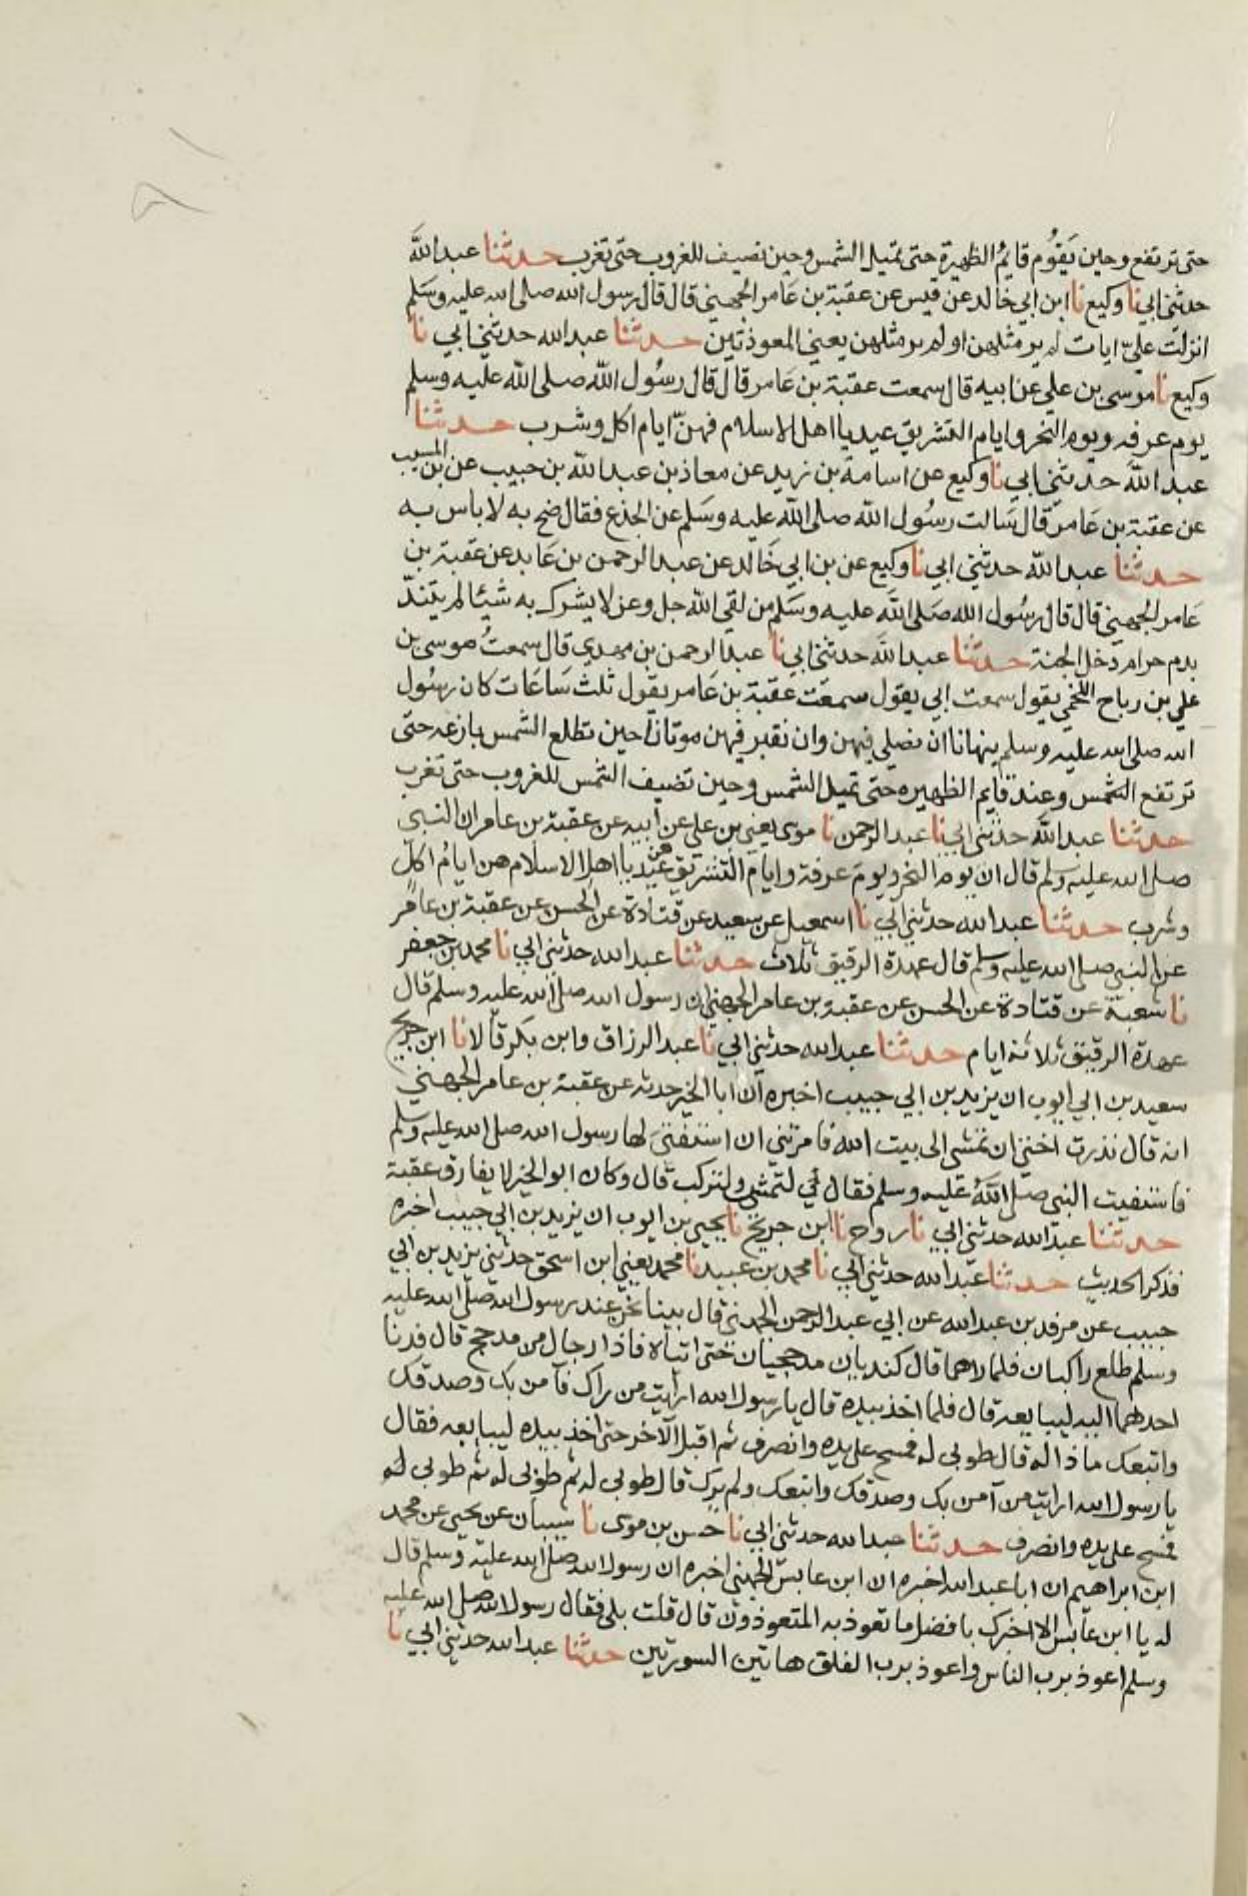 حتى ترتفع وحين يَقوُم قايمُ الظهيرة حتى تميل الشمس وحين تضيف للغروب حتى تغرب حدثنا عبد اللهَّ
حدثني ابي نا وكيع نا ابن ابي خالد عن قيس عن عقبة بن عَامر الجهني قال قال رسول الله صلى الله عليه وسَلم
انزلت عليّ ايات لم ير مثلهن او لم ير مثلهن يعني المعوذتين حدثنا عبد الله حدثني ابي نا
وكيع نا موسى بن علي عن ابيه قال سمعت عقبة بن عَامر قال قال رسُول اللّه صلى اللّه عليه وسلم
يوم عرفه ويوم النحر وايام التشريق عيد يا اهل الاسلام فهنّ ايام اكل وشرب حدثنا
عبد اللهَ حدثني ابي نا وكيع عن اسامة بن زيد عن معاذ بن عبد اللّه بن حبيب عن بن المسيب
عن عقبة بن عَامر قال سَالت رسُول الله صلى اللّه عليه وسَلم عن الجذع فقال ضح به لا باس به
حدثنا عبد اللّه حدثني ابي نا وكيع عن بن ابي خَالد عن عبد الرحمن بن عَايد عن عقبة بن
عَامر الجهني قال قال رسُول الله صَلى اللَّه عليه وسَلم من لقي اللّه جل وعز لا يشرك به شيئا لم يتندّ
بدم حرام دخل الجنة حدثنا عبد اللَّه حدثني ابي نا عبد الرحمن بن مهدي قال سمعتُ موسى بن
علي بن رباح اللخمي يقول سمعت ابي يقول سمعت عقبة بن عَامر يقول ثلث سَاعَات كان رسُول
الله صلى الله عليه وسلم ينهانا ان نصلي فيهن وان نقبر فيهن موتانا حين تطلع الشمس بازغه حتى
ترتفع الشمس وعند قايم الظهيره حتى تميل الشمس وحين تضيف الشمس للغروب حتى تغرب
حدثنا عبد اللَّه حدثني ابي نا عبد الرحمن نا موسى يعني بن علي عن ابيه عن عقبة بن عامر ان النبي
صلى الله عليه وسلم قال ان يوم النحر ويومَ عرفة وايام التشريق هن عيد يا اهل الاسلام هن ايامُ اكل
وشرب حدثنا عبد الله حدثني ابي نا اسمعيل عن سعيد عن قتادة عن الحسن عن عقبة بن عامر
عن النبي صلى الله عليه وسلم قال عهدة الرقيق ثلاث حدثنا عبد الله حدثني ابي نا محمد بن جعفر
نا شعبة عن قتادة عن الحسن عن عقبة بن عامر الجهني ان رسول الله صلى الله عليه وسلم قال
عهدة الرقيق ثلاثة ايام حدثنا عبد الله حدثني ابي نا عبد الرزاق وابن بكر قالا نا ابن جريج
سعيد بن ابي ايوب ان يزيد بن ابي حبيب اخبره ان ابا الخير حدثه عن عقبة بن عامر الجهني
انه قال نذرت اختي ان تمشي الى بيت الله فامرتني ان استفتيَ لها رسول الله صلى الله عليه وسلم
فاستفتيت النبي صلى اللهُ عليه وسلم فقال لي لتمشي ولتركب قال وكان ابو الخير لا يفارق عقبة
حدثنا عبد الله حدثني ابي نا روح نا ابن جريج نا يحيى بن ايوب ان يزيد بن ابي حبيب اخبره
فذكر الحديث حدثنا عبد الله حدثني ابي نا محمد بن عبيد نا محمد يعني ابن اسحق حدثني يزيد بن ابي
حبيب عن مرثد بن عبد الله عن ابي عبد الرحمن الجهني قال بينا نحن عند رسول الله صلى الله عليه
وسلم طلع راكبان فلما راهما قال كنديان مدحجيان حتى اتياه فاذا رجال من مدحج قال فدنا
احدهما اليه ليبايعه قال فلما اخذ بيده قال يا رسول الله ارايت من راك فآمن بك وصدقك
واتبعك ماذا له قال طوبى له فمسح على يده وانصرف ثم اقبل الآخر حتى اخذ بيده ليبايعه فقال
يا رسول الله ارايت من آمن بك وصدقك واتبعك ولم يرك قال طوبى له ثم طوبى له ثم طوبى له
فمسح على يده وانصرف حدثنا عبد الله حدثني ابي نا حسن بن موسى نا شيبان عن يحيى عن محمد
ابن ابراهيم ان ابا عبد الله اخبره ان ابن عابس الجهني اخبره ان رسول الله صلى الله عليه وسلم قال
له يا ابن عابس الا اخبرك بافضل ما تعوذ به المتعوذون قال قلت بلى فقال رسول الله صلى الله عليه
وسلم اعوذ برب الناس واعوذ برب الفلق هاتين السورتين حدثنا عبد الله حدثني ابي نا